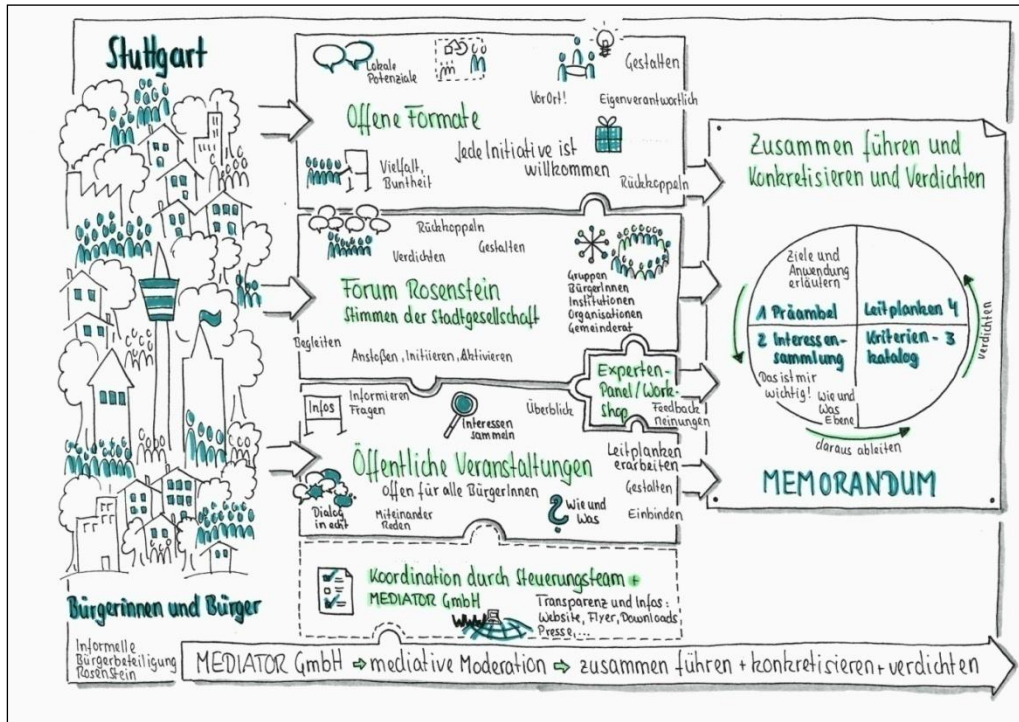 Stuttgart
Bürgerinnen und Bürger
Informelle
Bürgerbeteiligung
Rosenstein
Lokale
Potenziale
Gestalten
Vor Ort!
Eigenverantwortlich
Offene Formate
Jede Initiative ist
willkommen
Vielfalt,
Buntheit
Rückkoppeln
Rückkoppeln
Gestalten
Verdichten
Forum Rosenstein
Stimmen der Stadtgesellschaft
Gruppen
BürgerInnen
Institutionen
Organisationen
Gemeinderat
Begleiten
Anstoßen, Initiieren, Aktivieren
Experten-
Panel/Work-
shop
Feedback
Meinungen
Infos
Informieren
Fragen
Interessen
sammeln
Überblick
Leitplanken
erarbeiten
Öffentliche Veranstaltungen
offen für alle BürgerInnen
Gestalten
Dialog
in echt
Miteinander
Reden
Wie und
Was
Einbinden
Koordination durch Steuerungsteam +
MEDIATOR GmbH
WWW
Transparenz und Infos:
Website, Flyer, Downloads,
Presse,...
Zusammen führen und
Konkretisieren und Verdichten
Ziele und
Anwendung
erläutern
1 Präambel
Leitplanken 4
2 Interessen-
sammlung
Kriterien - 3
katalog
Das ist mir
wichtig!
Wie und
Was
Ebene
verdichten
daraus ableiten
MEMORANDUM
MEDIATOR GmbH ⇨ mediative Moderation ⇨ zusammen führen + konkretisieren + verdichten